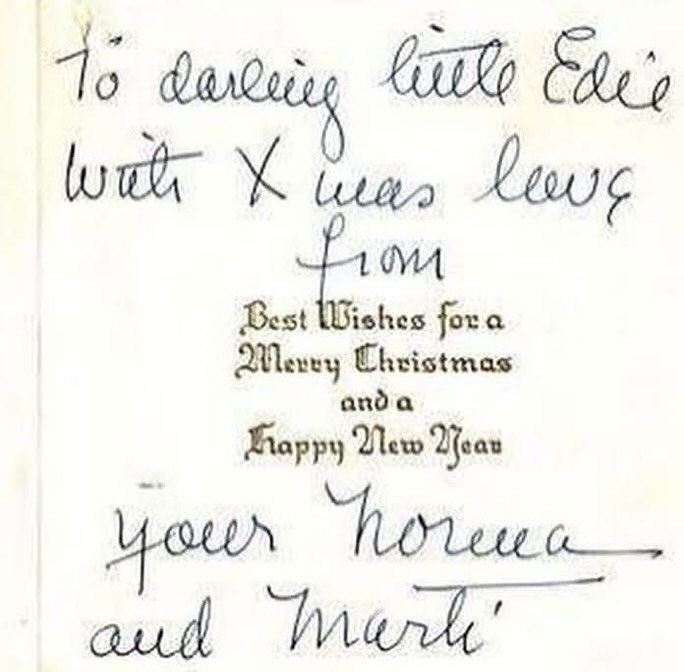 To darling little Edie
with Xmas love
from
Best Wishes for a
Merry Christmas
and a
Happy New Year
your Norma
and Marti